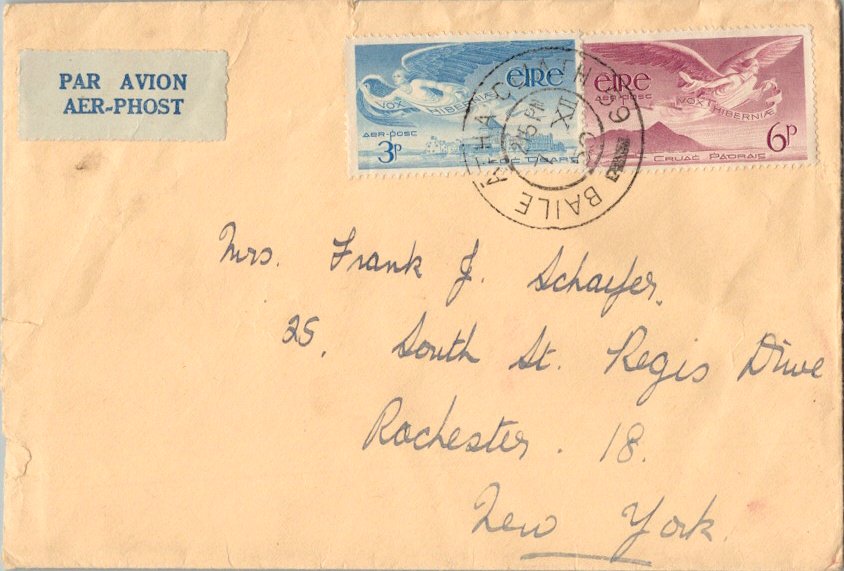 PAR AVION
AER-PHOST
éıRe
VOX HIBERNIÆ
AER-POSC
3p
éıRe
AER-POSC
VOX HIBERNIÆ
6p
CRUAC PÁDRAIG
BAILE ÁTHA CLIATH 6
2 15 PM
XII
50
Mrs. Frank J. Schaefer.
25, South St. Regis Drive
Rochester. 18.
New York.